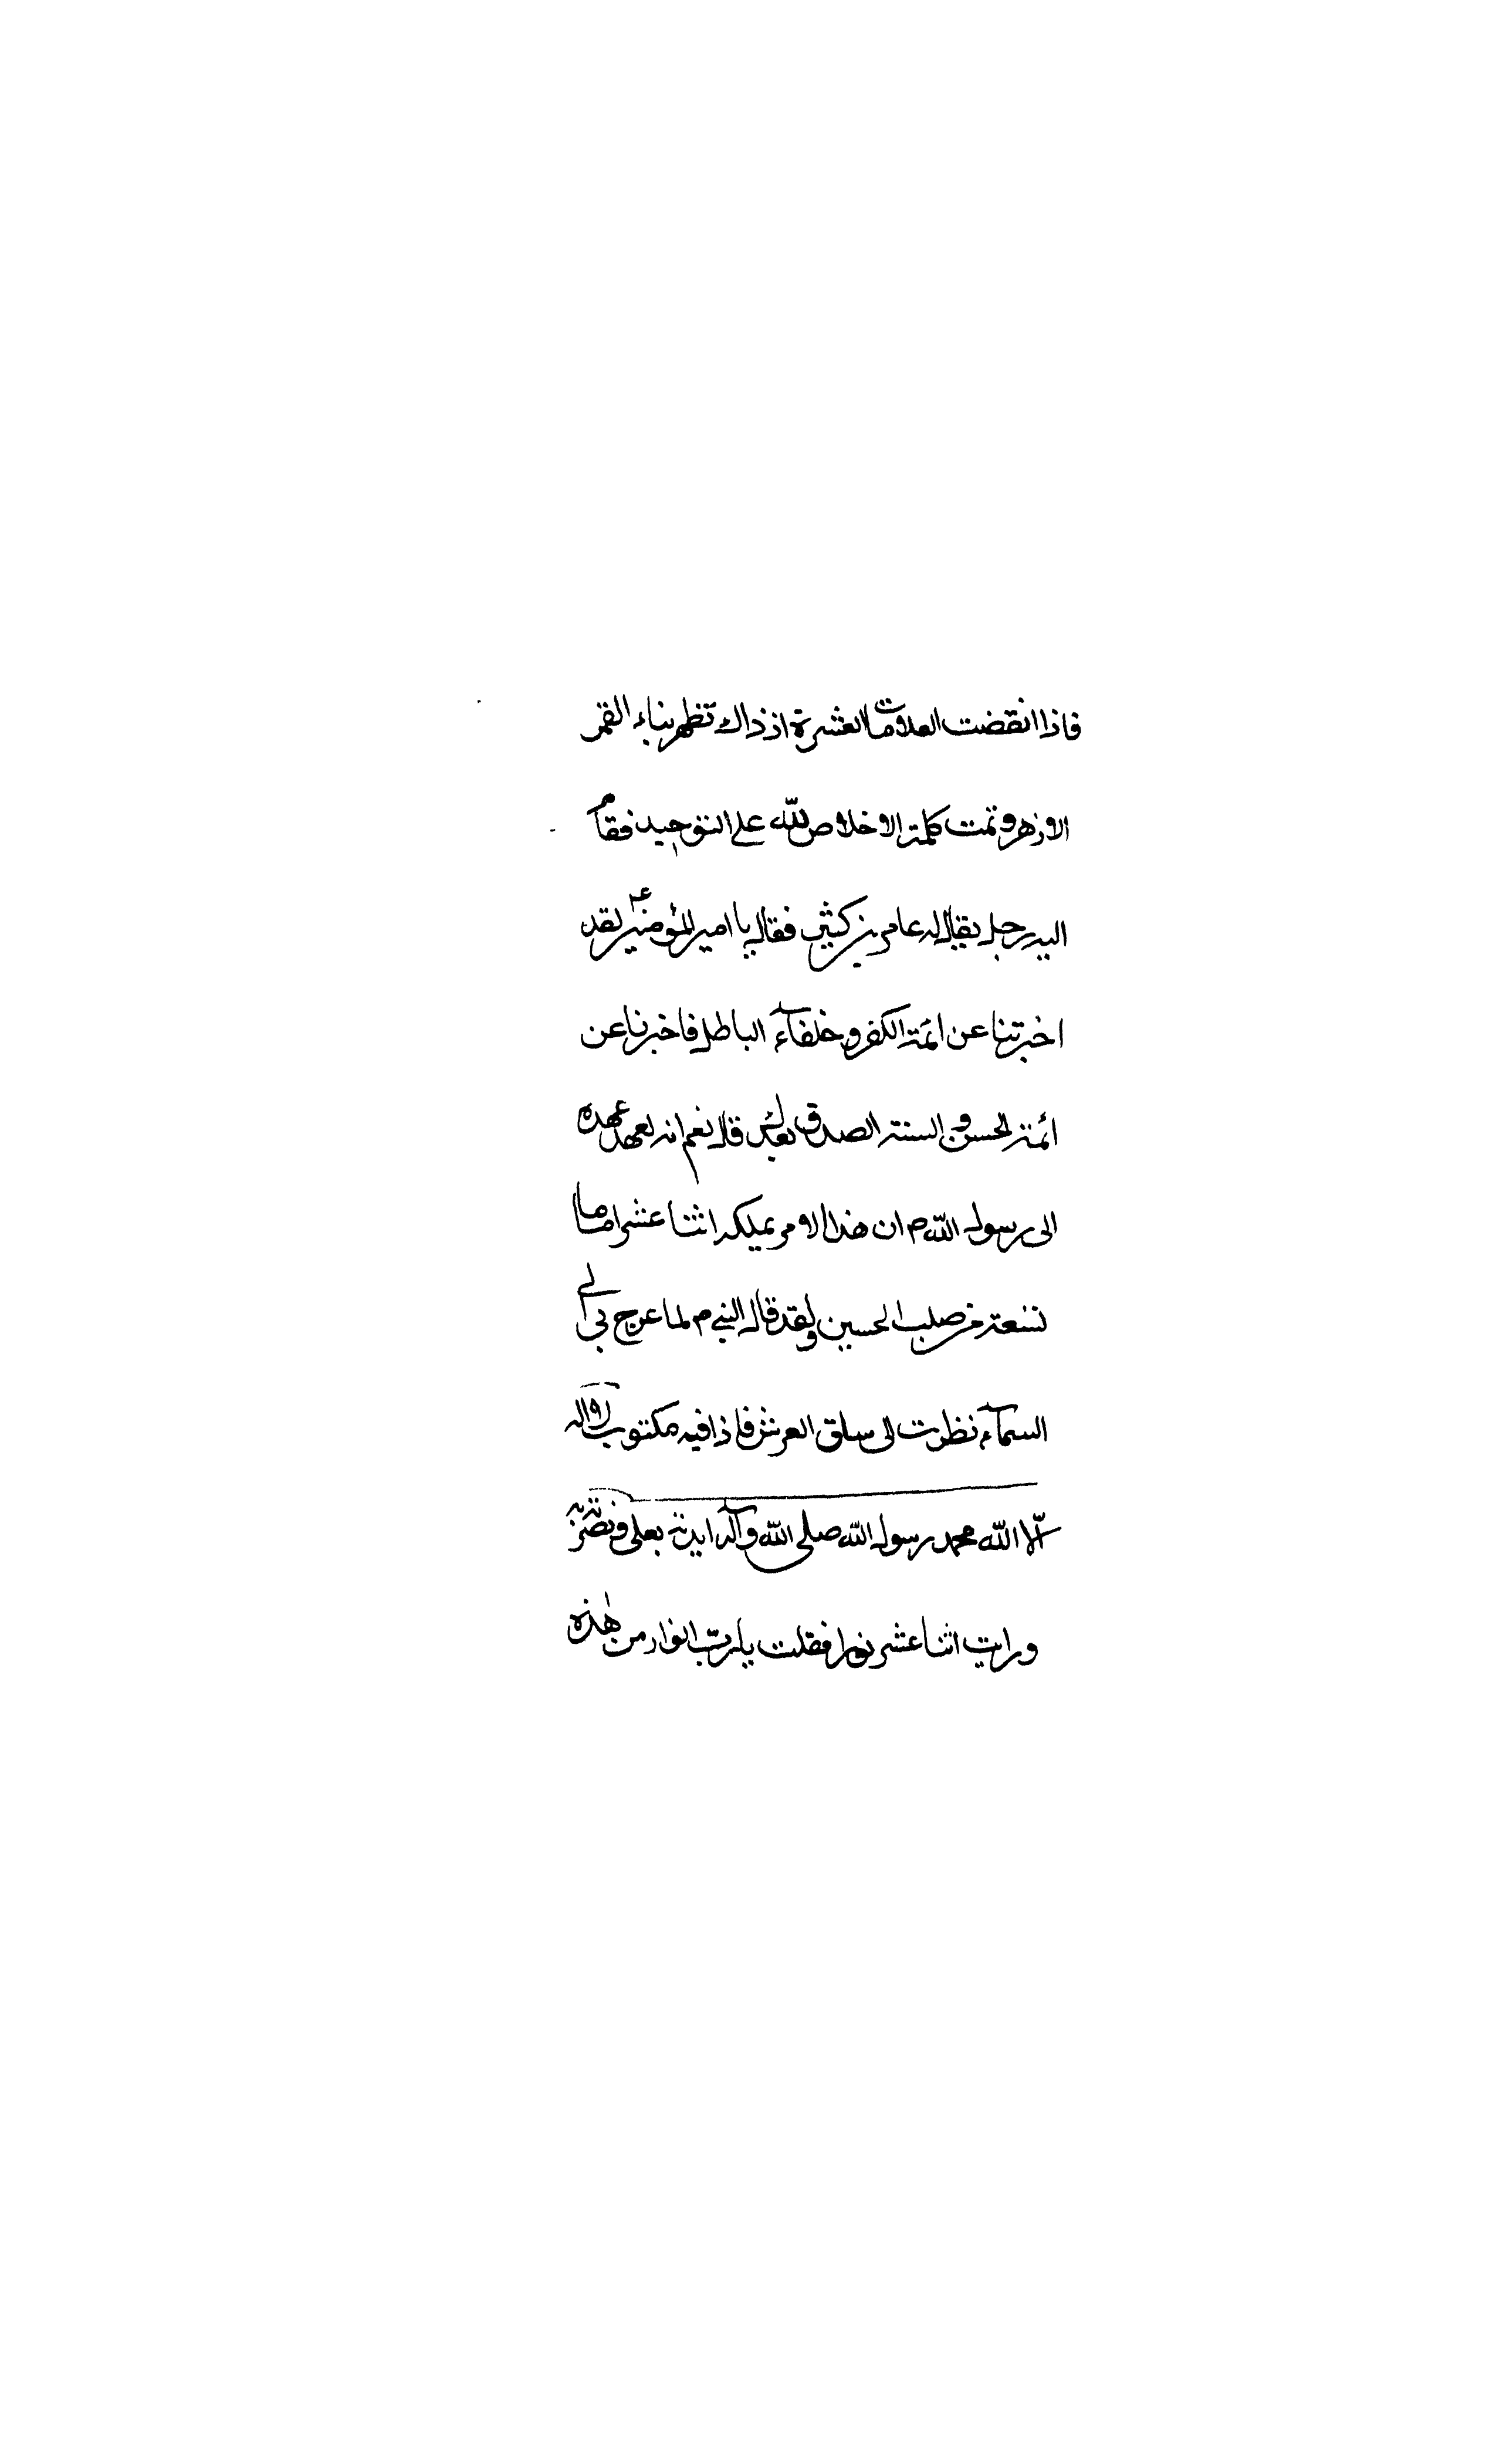 فاذا انقضت العلامات العشرة اذ ذاك تظهر بناء القمر
الازهر وتمت كلمة الاخلاص لله على التوحيد فقام
اليه رجل يقال له عامر بن كثير فقال يا امير المؤمنين ع لقد
اخبرتنا عن ائمة الكفر وخلفآء الباطل فاخبرنا عن
ائمة الحسن و السنة الصدق قال نعم انه لعهد عهده
الى رسول الله ص ان هذا الامر يملكه اثنا عشر اماما
تسعة من صلب الحسين ولقد قال النبي ص لما عرج بي الى
السمآء نظرت الى ساق العرش فاذا فيه مكتوب لا اله
الا الله محمد رسول الله صلى الله وآله ايدته بعلي ونصرته
ورايت اثنا عشر نورا فقلت يا رب انوار من هذه